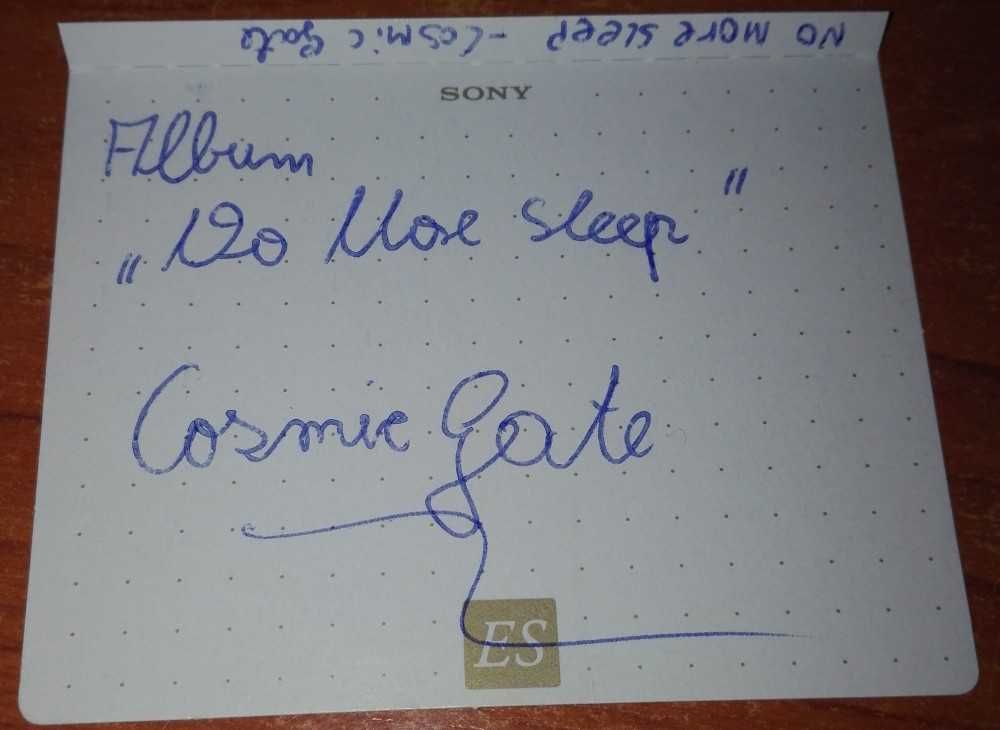 NO MORE SLEEP - COSMIC Gate
SONY
Album
„No More Sleep"
Cosmic Gate
ES